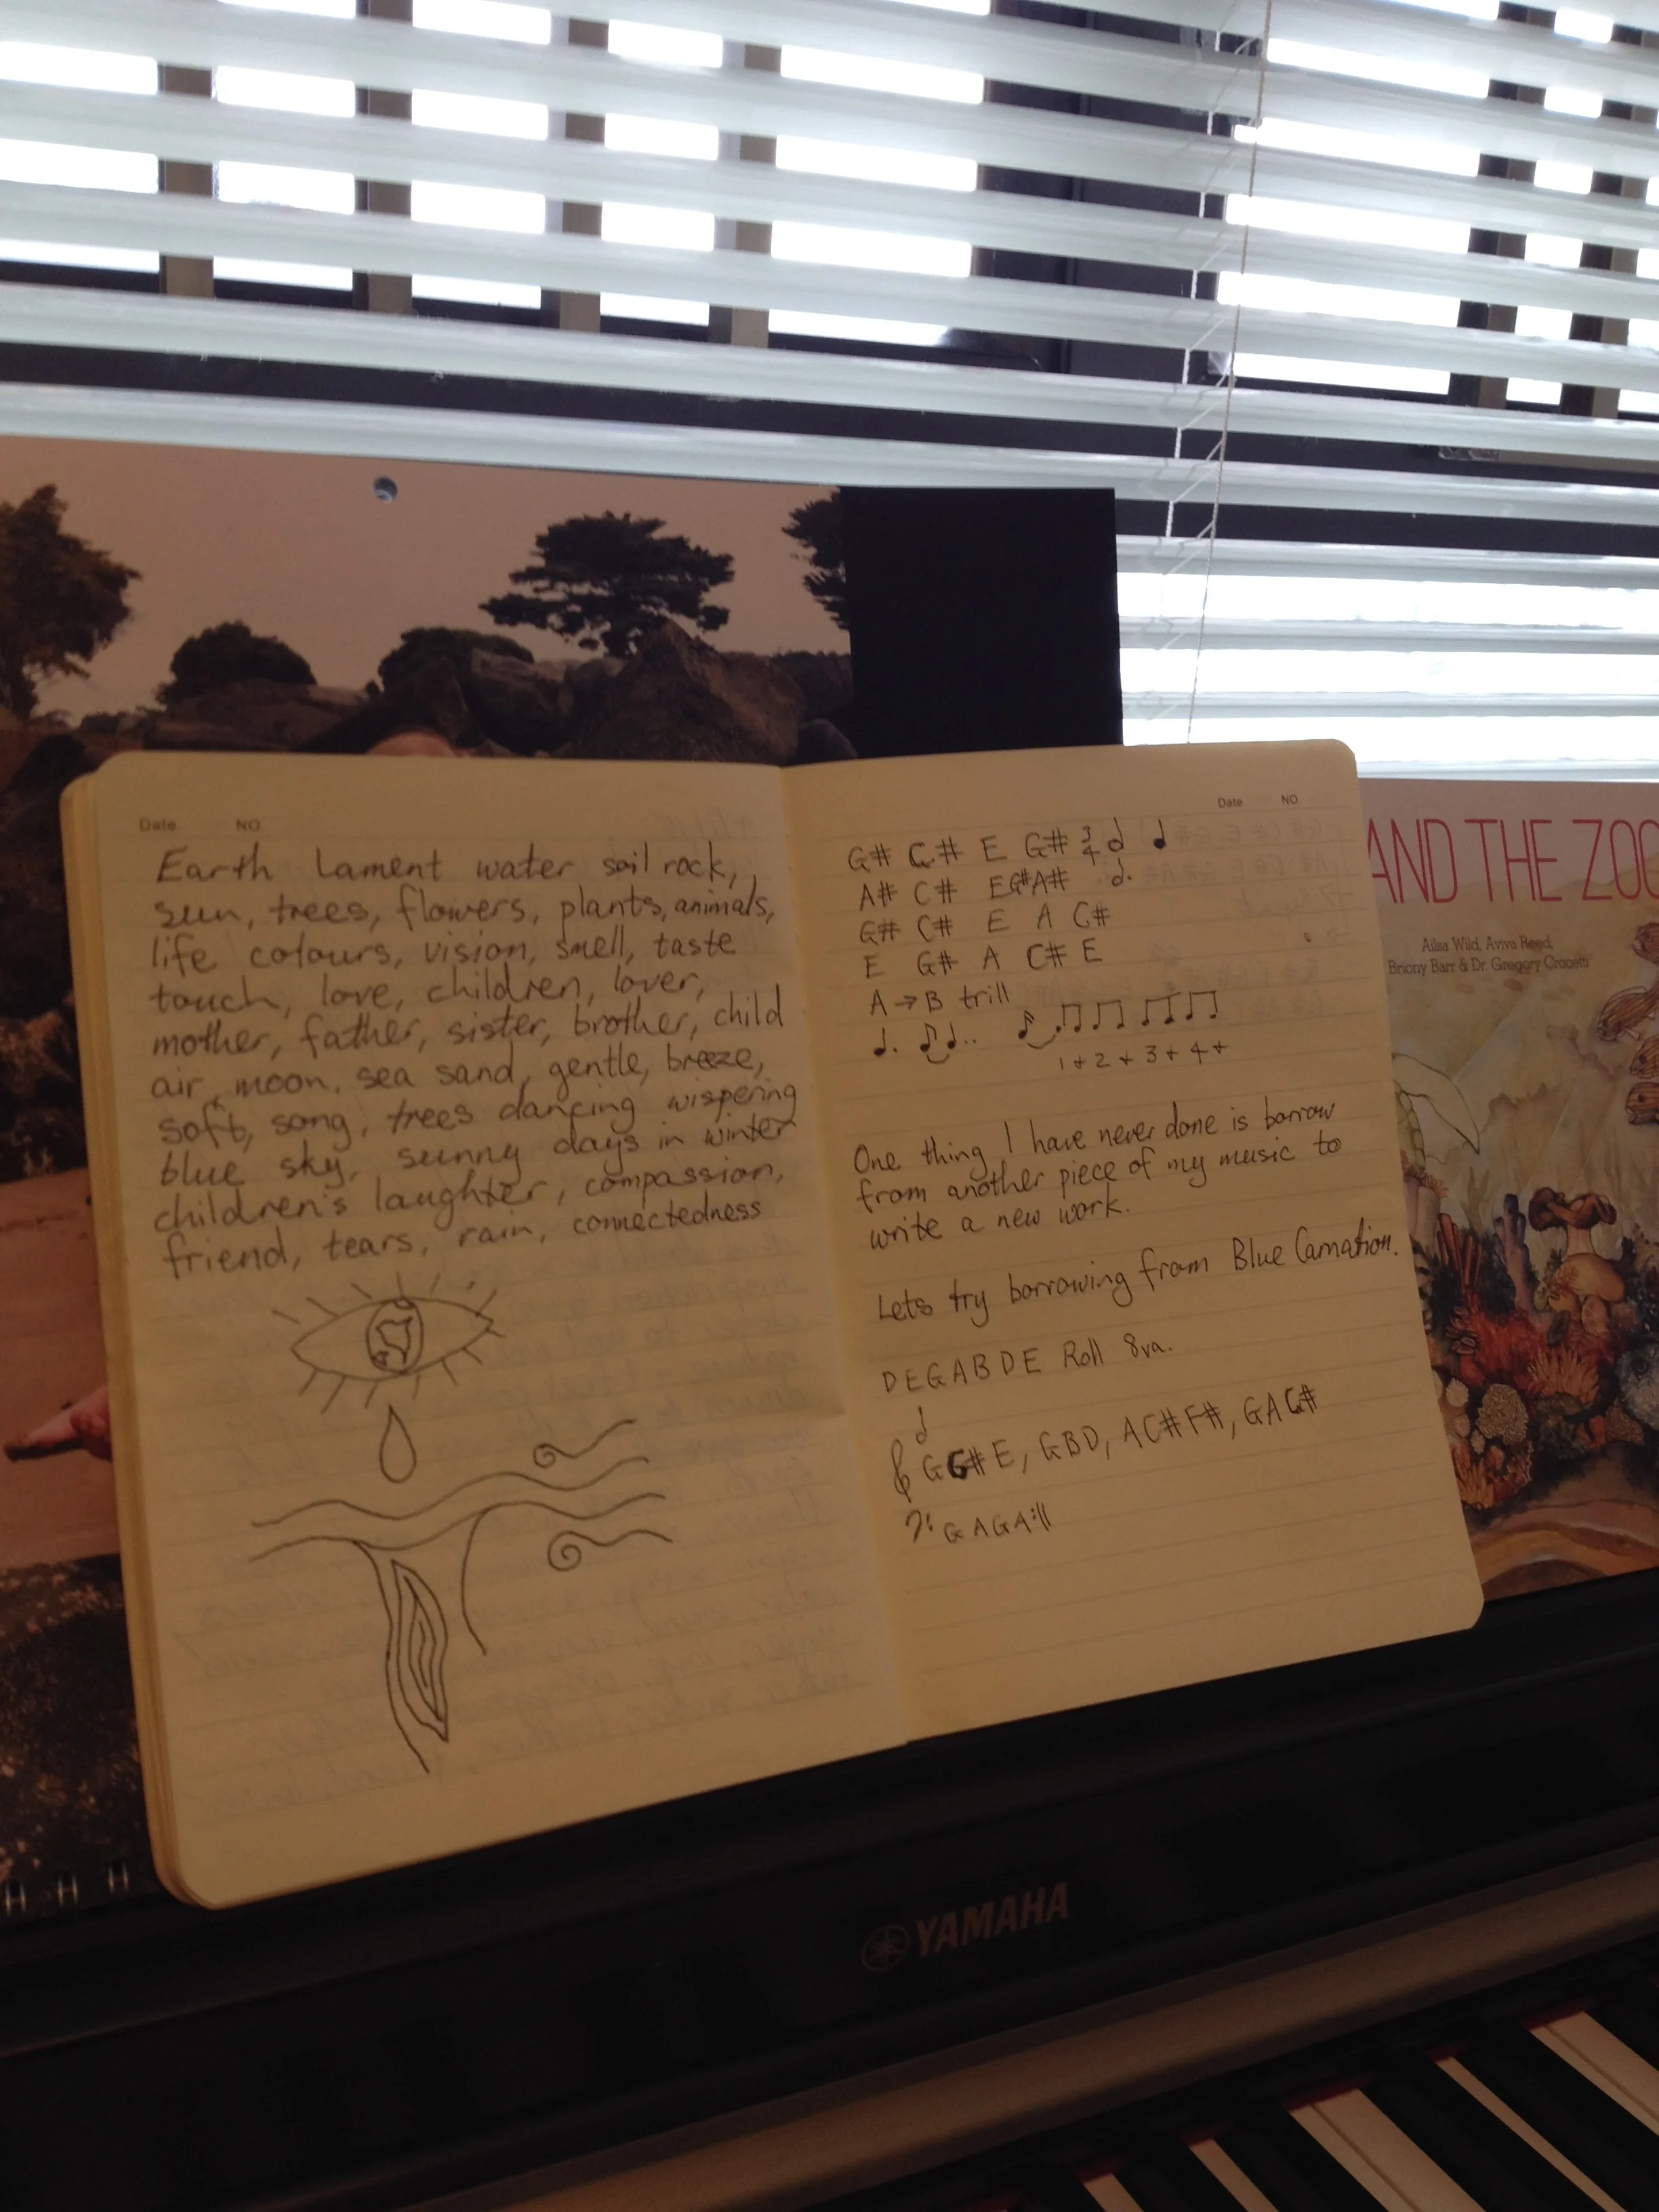 Date NO
Earth Lament water soil rock,
sun, trees, flowers, plants, animals,
life colours, vision, smell, taste
touch, love, children, lover,
mother, father, sister, brother, child
air, moon, sea sand, gentle, breeze,
soft, song, trees dancing wispering
blue sky, sunny days in winter
children's laughter, compassion,
friend, tears, rain, connectedness
Date NO
G# C# E G# 3/4
A# C# EG#A#
G# C# E A C#
E G# A C# E
A → B trill
1 + 2 + 3 + 4 +
One thing I have never done is borrow
from another piece of my music to
write a new work.
Lets try borrowing from Blue Carnation.
DEGABDE Roll 8va.
GG#E, GBD, AC#F#, GAC#
GAGA
AND THE ZOO
Ailsa Wild, Aviva Reed,
Briony Barr & Dr. Gregory Crocetti
YAMAHA